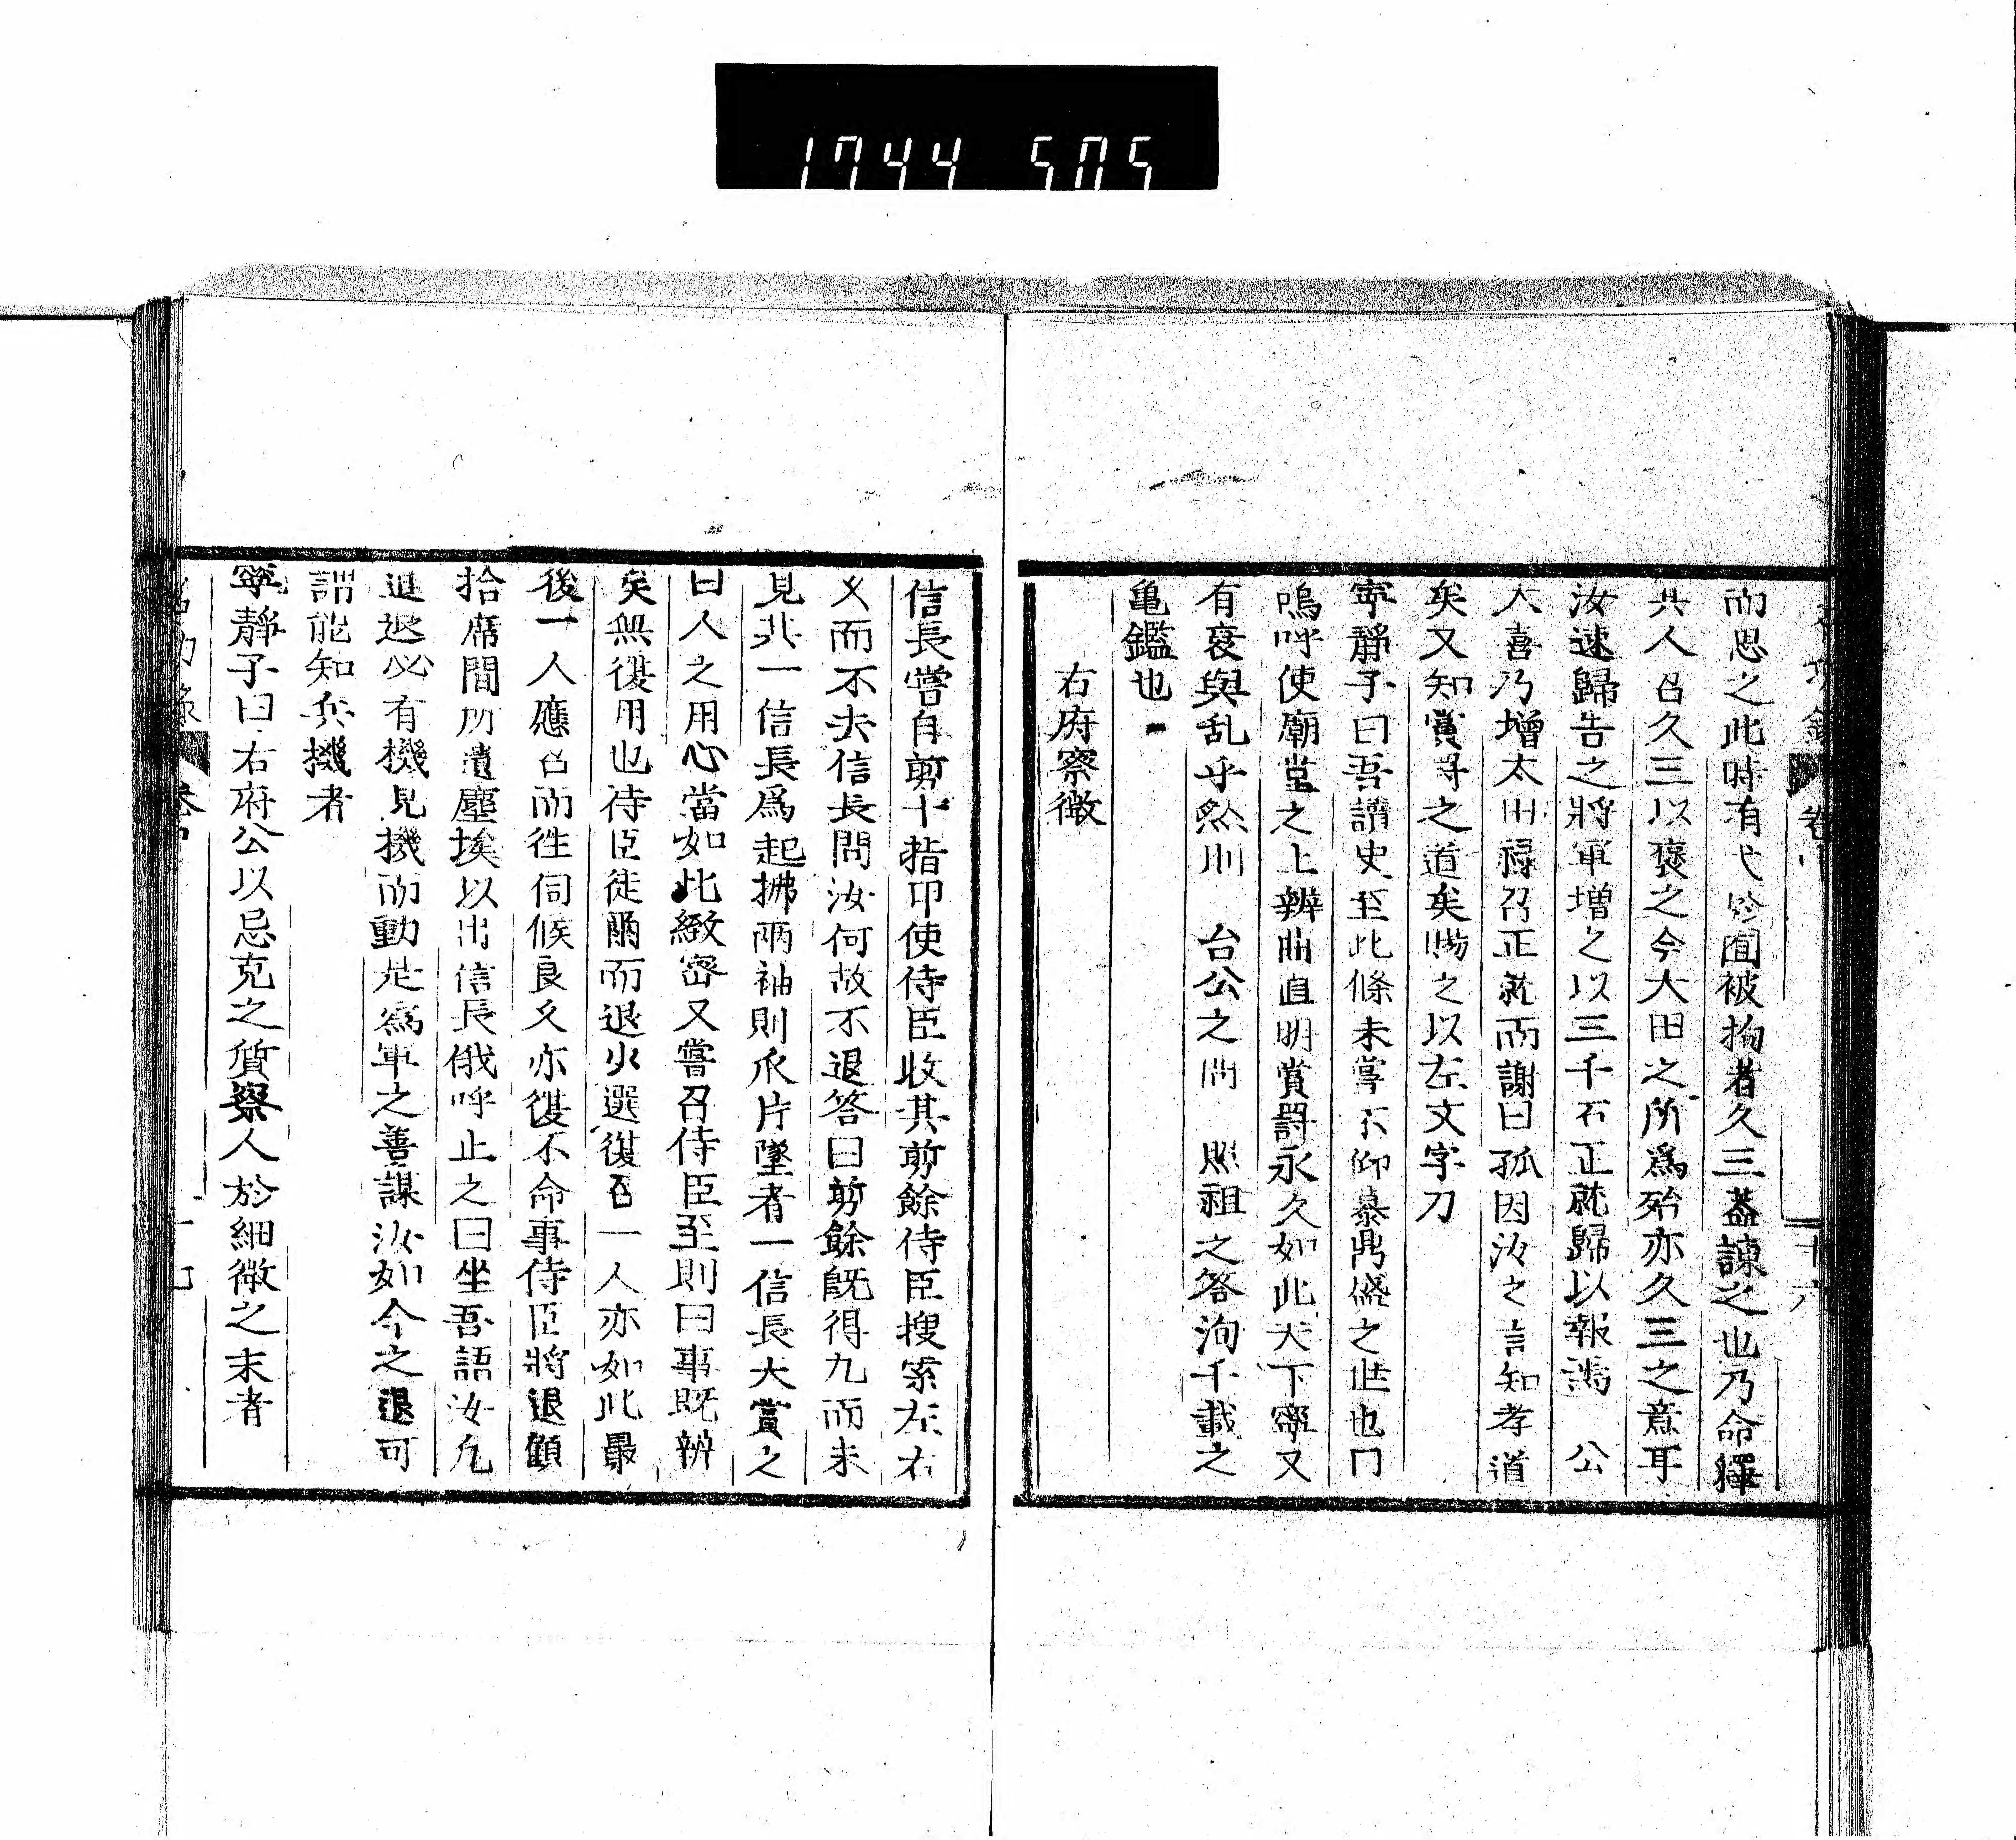 1744 505
而思之此時有弋於囿被拘者久三蓋諫之也乃命釋
其人召久三以褒之今大田之所爲殆亦久三之意耳
汝速歸告之將軍增之以三千石正就歸以報焉　公
大喜乃增太田祿召正就而謝曰孤因汝之言知孝道
矣又知賞罸之道矣賜之以左文字刀
寧靜子曰吾讀史至此條未嘗不仰慕鼎盛之世也
嗚呼使廟堂之上辨曲直明賞罸永久如此天下寧又
有衰與乱乎然則　台公之問　照祖之答洵千載之
亀鑑也
右府察微
信長嘗自剪十指爪使侍臣收其剪餘侍臣搜索左右
久而不去信長問汝何故不退答曰剪餘既得九而未
見其一信長爲起拂兩袖則爪片墜者一信長大賞之
曰人之用心當如此緻密又嘗召侍臣至則曰事既辨
矣無復用也侍臣徒爾而退少選復召一人亦如此最
後一人應召而往伺候良久亦復不命事侍臣將退顧
拾席間所遺塵埃以出信長俄呼止之曰坐吾語汝凡
進退必有機見機而動是爲軍之善謀汝如今之退可
謂能知兵機者
寧靜子曰右府公以忌克之質察人於細微之末者